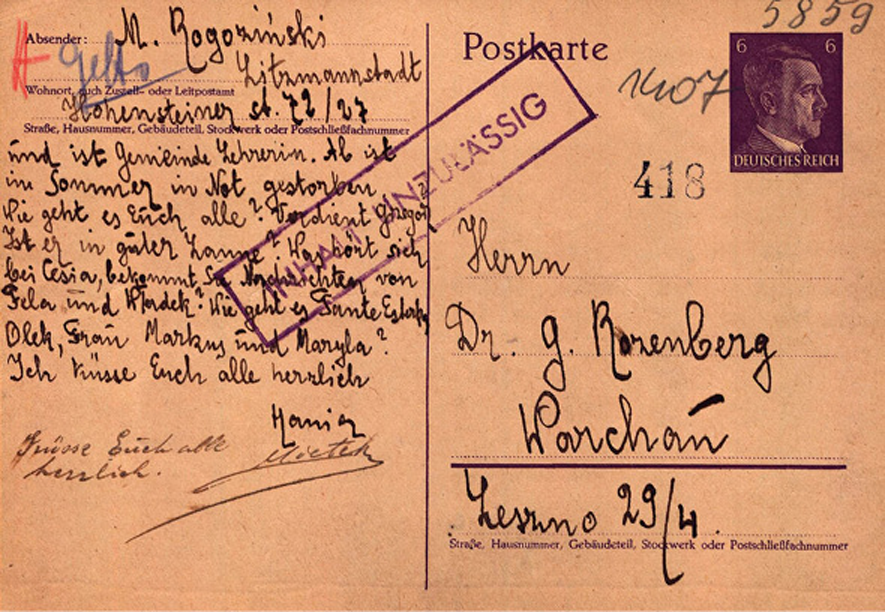 5859
Absender: M. Rogoziński
Litzmannstadt
Wohnort, auch Zustell- oder Leitpostamt
Hohensteiner st. 72/27
Straße, Hausnummer, Gebäudeteil, Stockwerk oder Postschließfachnummer
und ist Gemeinde Lehrerin. Ab ist
im Sommer in Not gestorben
Wie geht es Euch alle? Verdient Gregor?
Ist er in guter Laune? Was hört sich
bei Cesia, bekommt Sie Nachrichten von
Fela und Władek? Wie geht es Tante Esterka
Olek, Frau Markus und Maryla?
Ich küsse Euch alle herzlich
Hania
Grüsse Euch alle
herzlich. Mietek
INHALT UNZULÄSSIG
Postkarte
6 6
DEUTSCHES REICH
418
Herrn
Dr. G. Rozenberg
Warchau
Leszno 29/4.
Straße, Hausnummer, Gebäudeteil, Stockwerk oder Postschließfachnummer